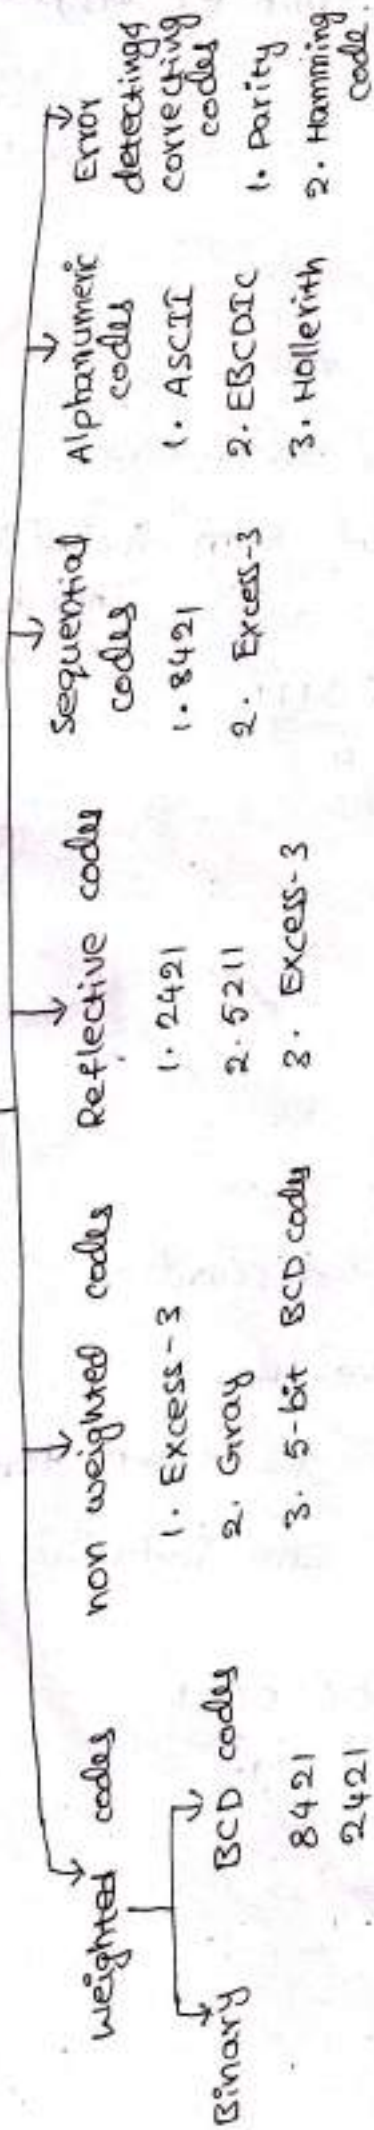 weighted codes
Binary
BCD codes
8421
2421
non weighted codes
1. Excess-3
2. Gray
3. 5-bit BCD codes
Reflective codes
1. 2421
2. 5211
3. Excess-3
Sequential
codes
1. 8421
2. Excess-3
Alphanumeric
codes
1. ASCII
2. EBCDIC
3. Hollerith
Error
detecting &
correcting
codes
1. Parity
2. Hamming
code.